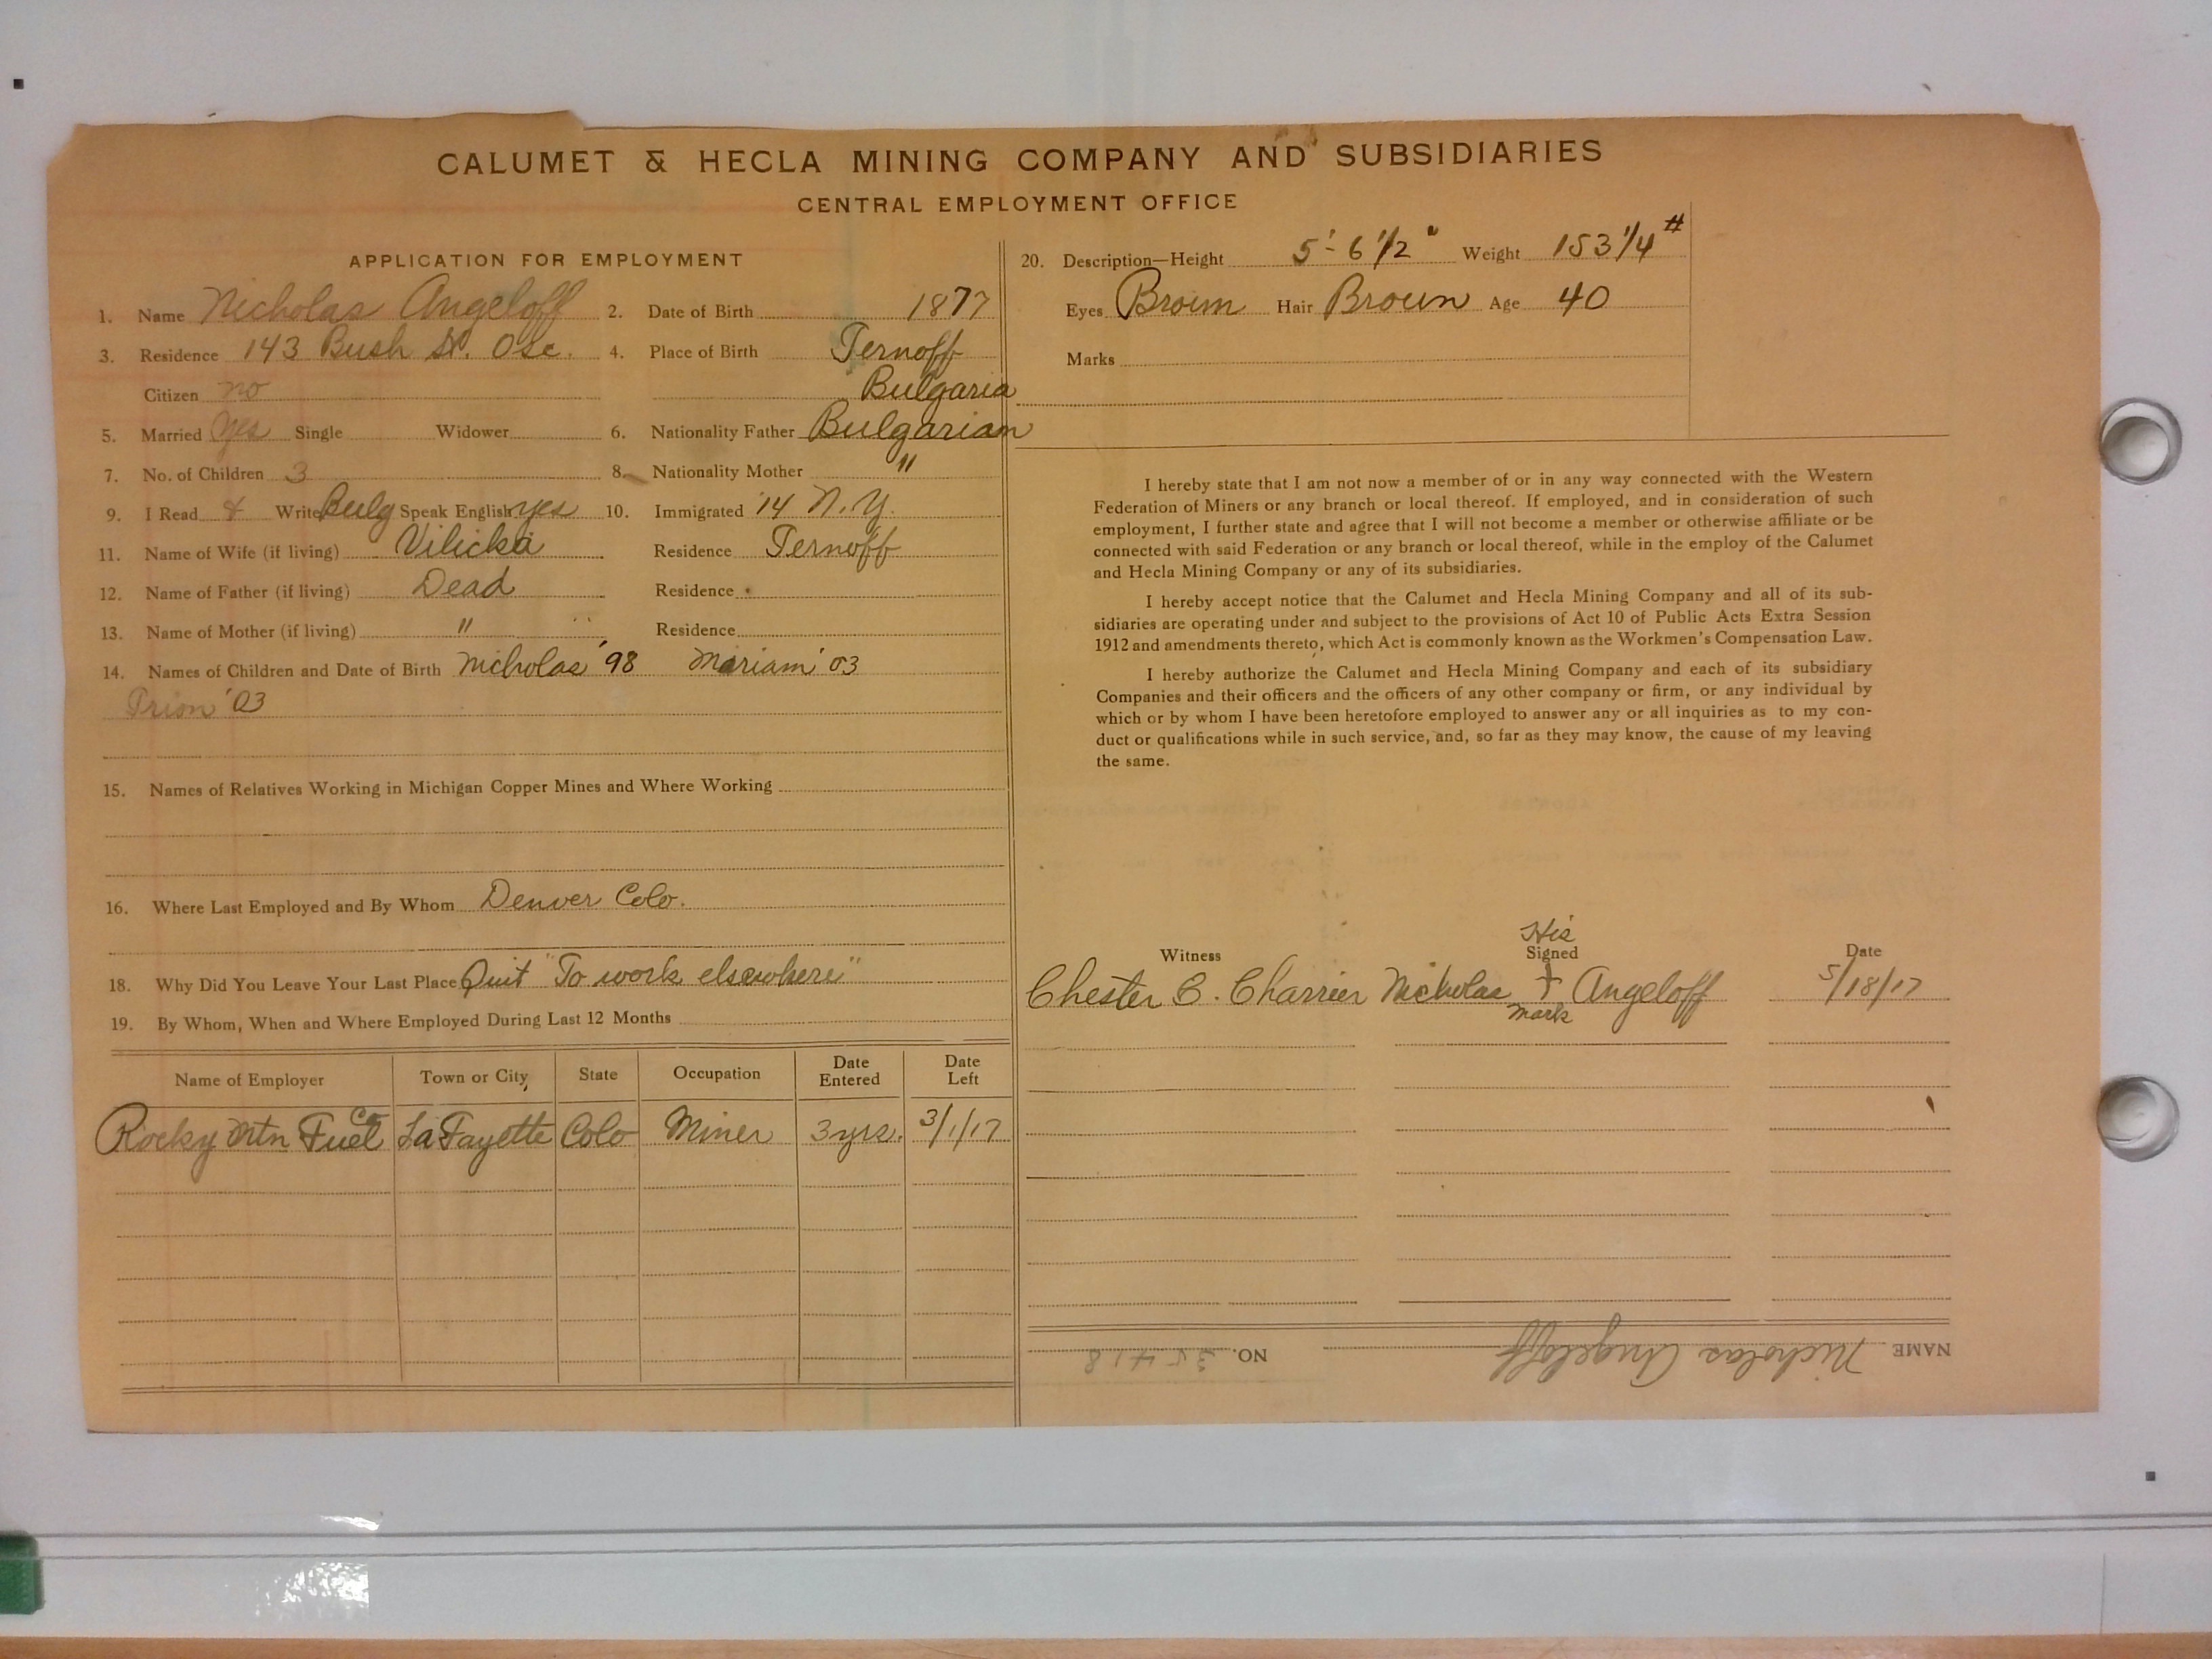 CALUMET & HECLA MINING COMPANY AND SUBSIDIARIES
CENTRAL EMPLOYMENT OFFICE
APPLICATION FOR EMPLOYMENT
1. Name Nicholas Angeloff 2. Date of Birth 1877
3. Residence 143 Bush St. Osc. 4. Place of Birth Ternoff
Citizen no Bulgaria
5. Married Yes Single Widower 6. Nationality Father Bulgarian
7. No. of Children 3 8. Nationality Mother "
9. I Read & Write Bulg Speak English yes 10. Immigrated '14 N.Y.
11. Name of Wife (if living) Vilicka Residence Ternoff
12. Name of Father (if living) Dead Residence
13. Name of Mother (if living) " Residence
14. Names of Children and Date of Birth Nicholas '98 Mariam '03
Prion '03
15. Names of Relatives Working in Michigan Copper Mines and Where Working
16. Where Last Employed and By Whom Denver Colo.
18. Why Did You Leave Your Last Place Quit "To work elsewhere"
19. By Whom, When and Where Employed During Last 12 Months
Name of Employer Town or City State Occupation Date Entered Date Left
Rocky Mtn Fuel Co LaFayette Colo Miner 3 yrs. 3/1/17
20. Description—Height 5'-6 1/2" Weight 153 1/4 #
Eyes Brown Hair Brown Age 40
Marks
I hereby state that I am not now a member of or in any way connected with the Western
Federation of Miners or any branch or local thereof. If employed, and in consideration of such
employment, I further state and agree that I will not become a member or otherwise affiliate or be
connected with said Federation or any branch or local thereof, while in the employ of the Calumet
and Hecla Mining Company or any of its subsidiaries.
I hereby accept notice that the Calumet and Hecla Mining Company and all of its sub-
sidiaries are operating under and subject to the provisions of Act 10 of Public Acts Extra Session
1912 and amendments thereto, which Act is commonly known as the Workmen's Compensation Law.
I hereby authorize the Calumet and Hecla Mining Company and each of its subsidiary
Companies and their officers and the officers of any other company or firm, or any individual by
which or by whom I have been heretofore employed to answer any or all inquiries as to my con-
duct or qualifications while in such service, and, so far as they may know, the cause of my leaving
the same.
His
Witness Signed Date
Chester C. Charrier Nicholas + Angeloff 5/18/17
mark
NAME Nicholas Angeloff NO. 35418